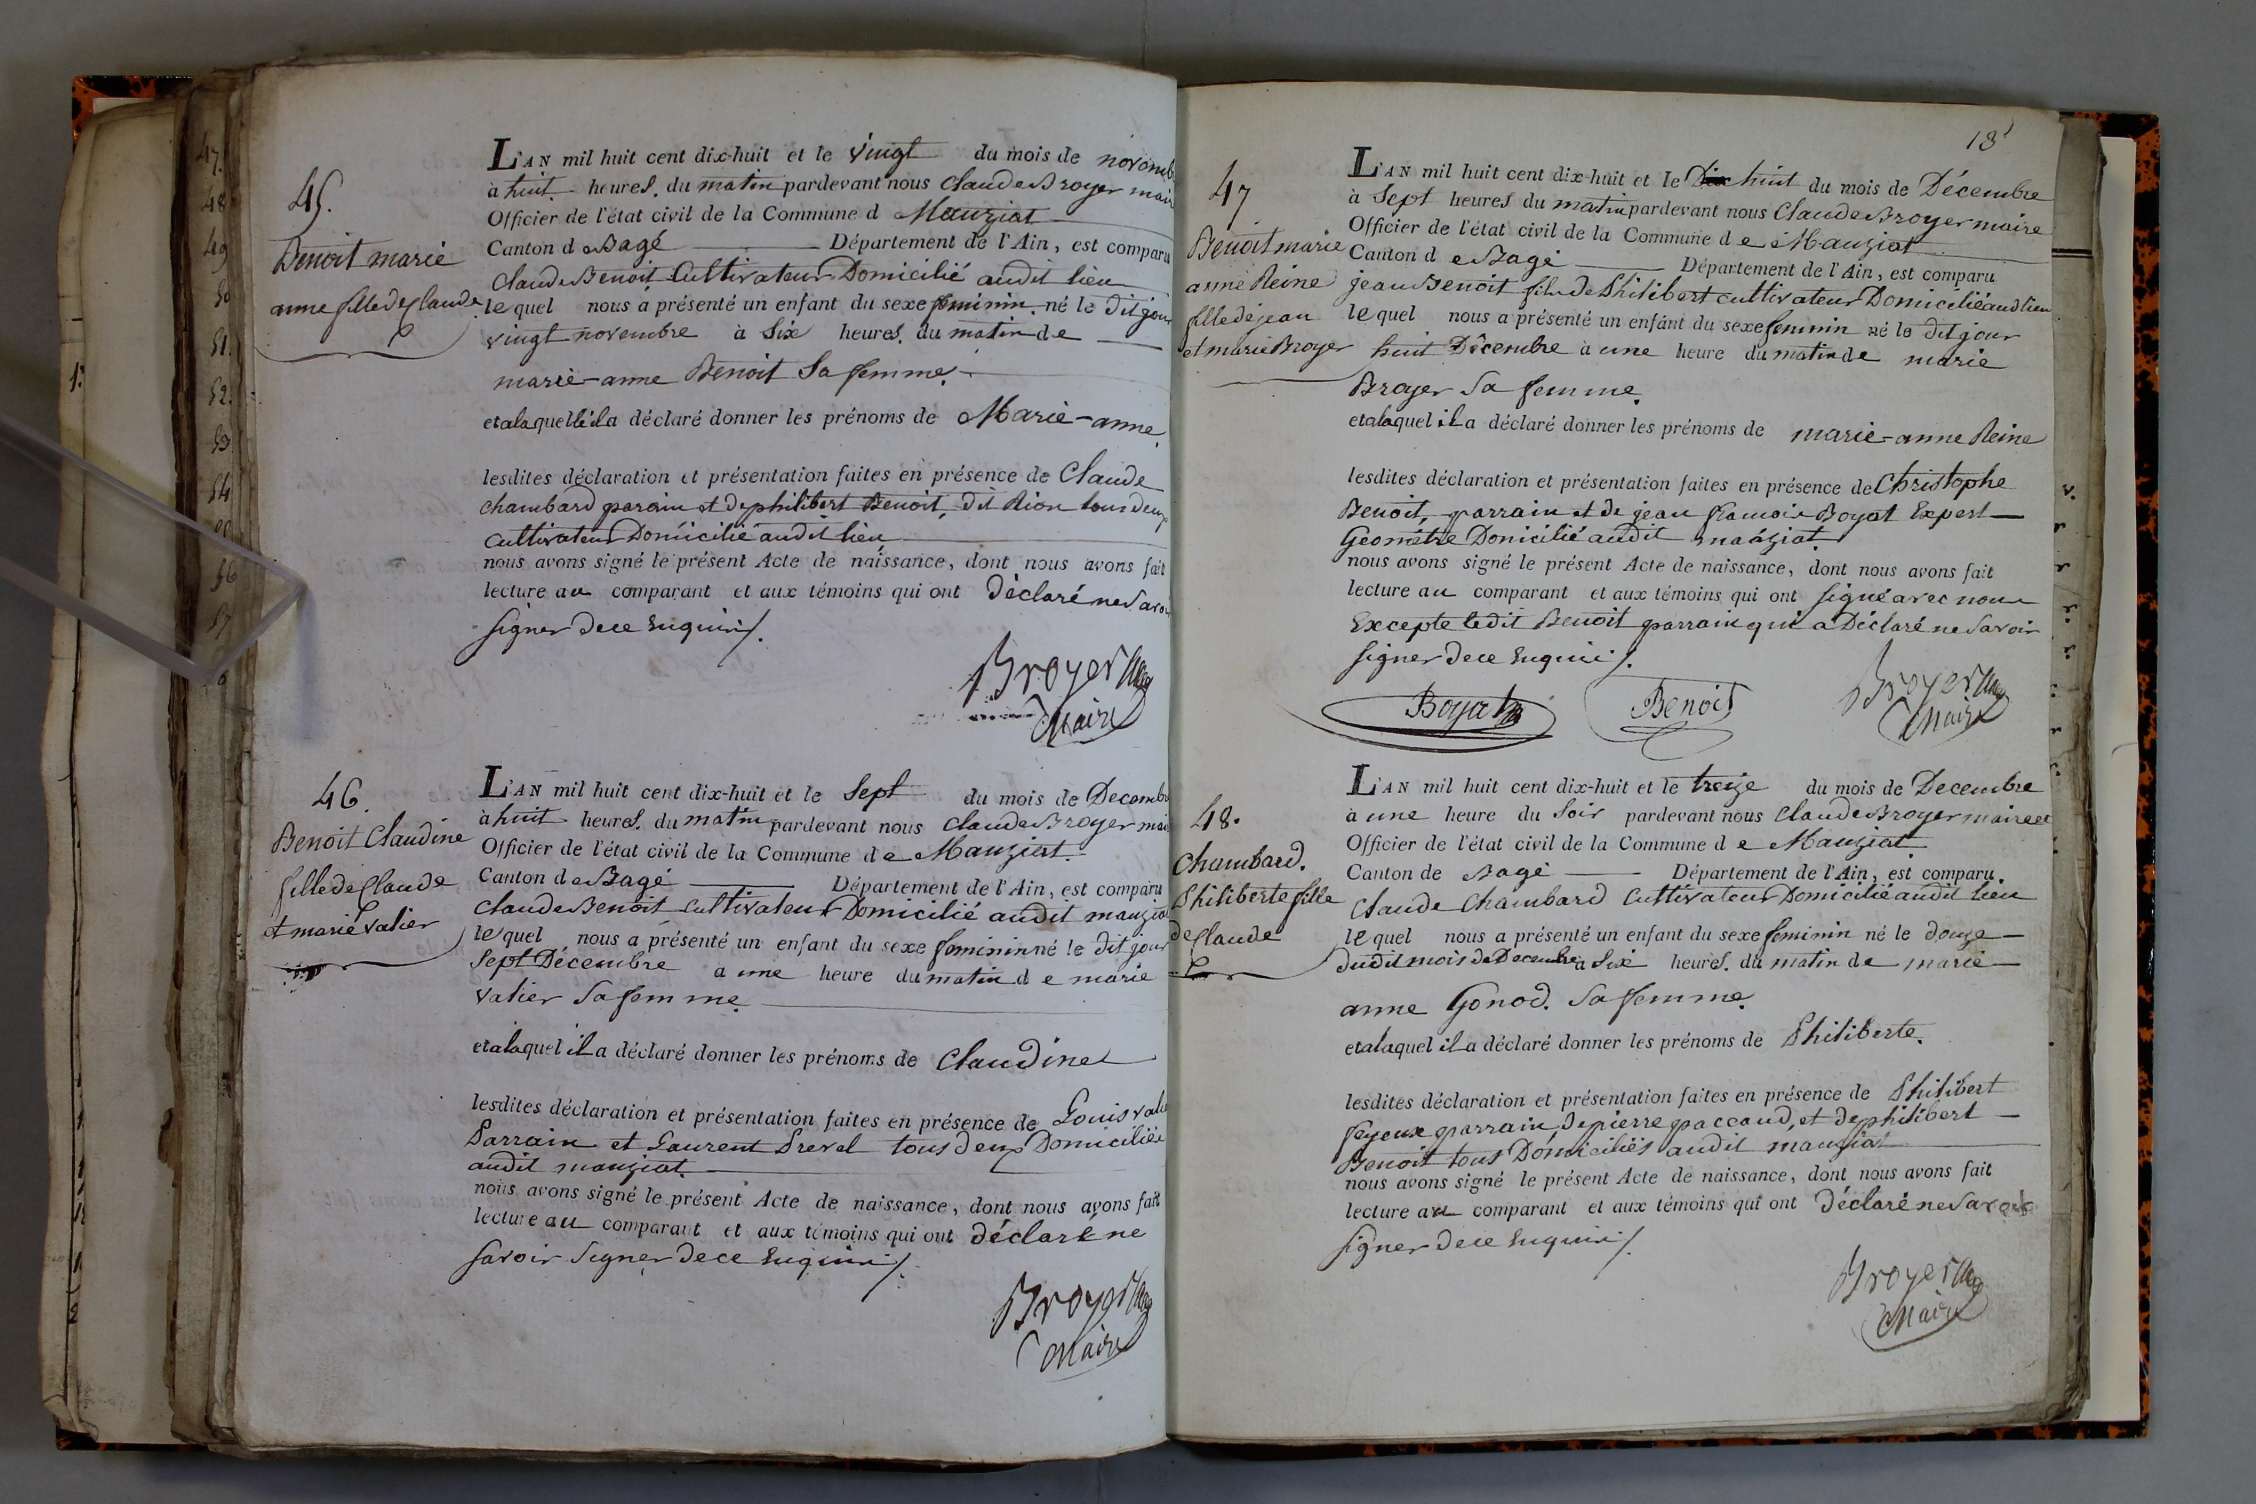 45.
Benoit marie
anne fille de Claude
L'AN mil huit cent dix-huit et le vingt du mois de novemb
à huit heures. du matin pardevant nous Claude Broyer mair
Officier de l'état civil de la Commune d Mauziat
Canton d Bagé Département de l'Ain, est comparu
Claude Benoit Cultivateur Domicilié audit lieu
lequel nous a présenté un enfant du sexe feminin. né le dit jour
vingt novembre à Six heures. du matin de
marie-anne Benoit Sa femme.
et a laquelle il a déclaré donner les prénoms de Marie-anne.
lesdites déclaration et présentation faites en présence de Claude
chambard parain et de philibert Benoit, dit Rion tous deux
cultivateur Domicilié audit lieu
nous avons signé le présent Acte de naissance, dont nous avons fait
lecture au comparant et aux témoins qui ont Déclaré ne Savoir
signer de ce Enquiri/.
Broyer
Maire
46.
Benoit Claudine
fille de Claude
et marie Valier
L'AN mil huit cent dix-huit et le Sept du mois de Decembr
à huit heures. du matin pardevant nous Claude Broyer mai
Officier de l'état civil de la Commune d e Mauziat.
Canton de Bagé Département de l'Ain, est comparu
Claude Benoit Cultivateur Domicilié audit mauziat
lequel nous a présenté un enfant du sexe feminin né le dit jour
Sept Décembre a une heure du matin d e marie
Valier Sa femme
et a laquel il a déclaré donner les prénoms de Claudine
lesdites déclaration et présentation faites en présence de Louis Valie
Parrain et Laurent Prevel tous deux Domiciliés
audit mauziat
nous avons signé le présent Acte de naissance, dont nous avons fait
lecture au comparant et aux témoins qui ont déclaré ne
savoir Signer de ce Enquiri/.
Broyer
Maire
18
47
Benoit marie
anne Reine
fille de jean
et marie Broyer
L'AN mil huit cent dix-huit et le huit du mois de Décembre
à Sept heures du matin pardevant nous Claude Broyer maire
Officier de l'état civil de la Commune d e Mauziat
Canton d e Bagé Département de l'Ain, est comparu
jean Benoit fils de Philibert cultivateur Domicilié aud lieu
lequel nous a présenté un enfant du sexe feminin né le dit jour
huit Décembre a une heure du matin de marie
Broyer Sa femme.
et a laquel il a déclaré donner les prénoms de marie-anne Reine
lesdites déclaration et présentation faites en présence de Christophe
Benoit, parrain et de jean francois Boyat Expert
Géométre Domicilié audit mauziat.
nous avons signé le présent Acte de naissance, dont nous avons fait
lecture au comparant et aux témoins qui ont signé avec nous
Excepte ledit Benoit parrain qui a Déclaré ne Savoir
signer de ce Enquiri/.
Boyat Benoit Broyer
Maire
48.
Chambard.
Philiberte fille
de Claude
L'AN mil huit cent dix-huit et le treize du mois de Decembre
à une heure du Soir pardevant nous Claude Broyer maire et
Officier de l'état civil de la Commune d e Mauziat
Canton de Bagé Département de l'Ain, est comparu.
Claude Chambard Cultivateur Domicilié audit lieu
lequel nous a présenté un enfant du sexe feminin né le douze
dudit mois de Decembre a Six heures. du matin de marie
anne Gonod. Sa femme.
et a laquel il a déclaré donner les prénoms de Philiberte.
lesdites déclaration et présentation faites en présence de Philibert
feyeux parrain, de pierre paccaud, et de philibert
Benoit tous Domiciliés audit mauziat
nous avons signé le présent Acte de naissance, dont nous avons fait
lecture au comparant et aux témoins qui ont Déclaré ne Savoir
signer de ce Enquiri/.
Broyer
Maire